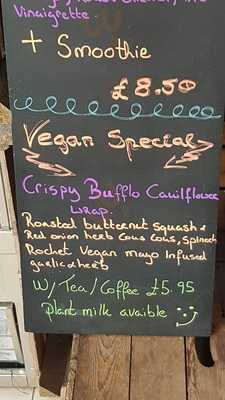 Vinaigrette
+ Smoothie
£8.50
Vegan Special
Crispy Bufflo Cauilflower
wrap.
Roasted butternut squash &
Red onion herb Cous Cous, spinach
Rocket Vegan mayo Infused
garlic & herb
W/ Tea/Coffee £5.95
Plant milk avaible